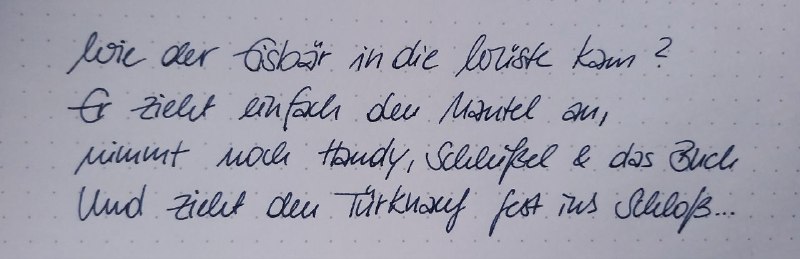 Wie der Eisbär in die Wüste kam?
Er zieht einfach den Mantel an,
nimmt noch Handy, Schlüßel & das Buch
Und zieht den Türknauf fest ins Schloß...